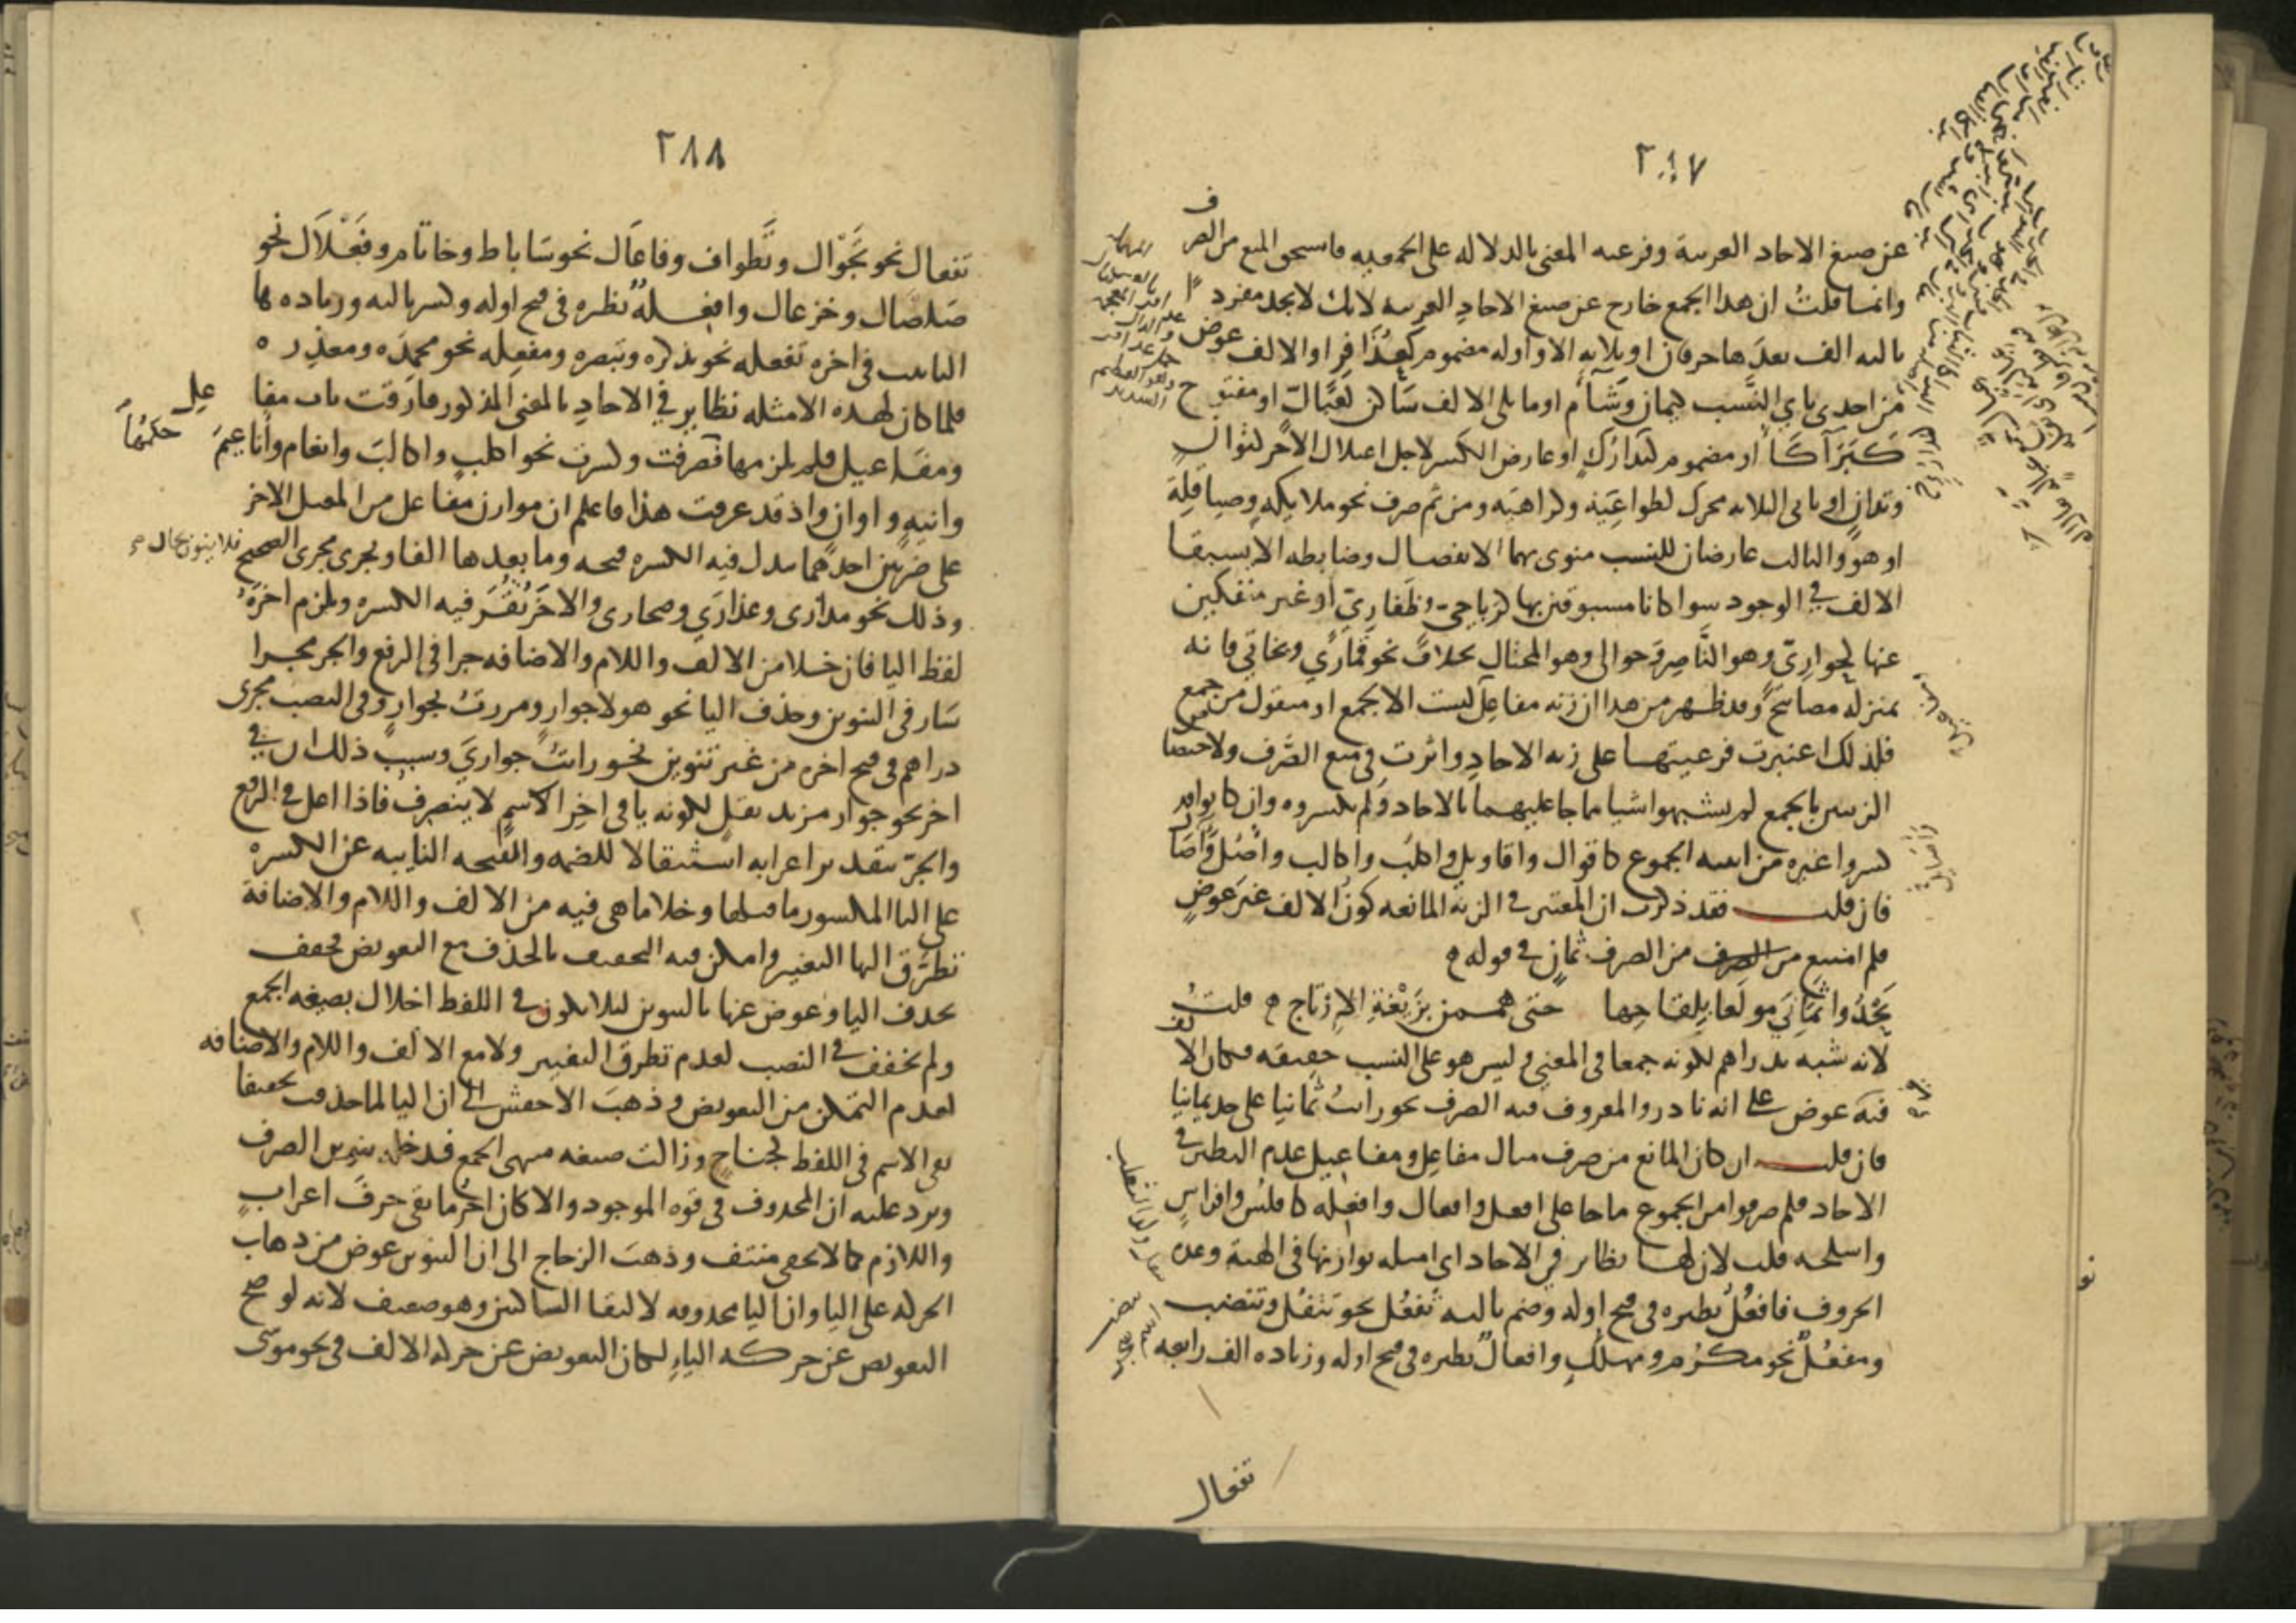 ٢٨٧
عن صيغ الاحاد العربية وفرعيه المعنى بالدلاله على الجمعيه فاستحق المنع من الصرف
وانما قلتُ ان هذا الجمع خارج عن صيغ الاحادِ العربيه لانك لا تجد مفردًا
ثالثه الف بعدَها حرفان او ثلاثه الا واوله مضموم كعُذَافِر او الالف عوض
من احدى ياي النَّسب كيمان وشَآم او ما يلى الالف سَاكن كعَبَالّ او مفتوح
كَبَرَآكَا او مضموم كتدارُكٍ او عارض الكسر لاجل اعلال الآخر كتوانٍ
وتدانٍ او ثانى الثلاثه محرك كطواعِيَه وكراهيَه ومن ثم صرف نحو ملايكهٍ وصياقلةٍ
او هو والثالث عارضان للنسب منوى بهما الانفصال وضابطه الا يسبقا
الالف في الوجود سوا كانا مسبوقين بها كرباحيّ وظَفاريّ او غير منفكين
عنها كحواريّ وهو النَّاصر وحوالى وهو المحتال بخلاف نحو قمَاريّ وبخاتيّ فانه
بمنزله مصابيحَ وقد ظهر من هذا ان زنه مفاعِل ليست الا لجمع او منقول من جمع
فلذلك اعتبرت فرعيتهما على زنه الاحادِ واثرت في منع الصَّرف ولاختصاص
الزنتين بالجمع لم يشبهوا شيا مما جا عليهما بالاحاد ولم يكسروه وان كانوا قد
كسروا غيره من ابنيه الجموع كاقوال واقاويل واكلب واكالب واصُل وآصَال
فان قلت فقد ذكرت ان المعتبر في الزنه المانعه كون الالف غير عوضٍ
فلم امتنع من الصرف ثمانٍ في قوله
يَحْدُوا ثَمَانِيَ مولَعا بِلِقاحِها حتى هممن بزَيْغَةِ الاِرتاج قلتُ
لانه شبه بدراهم لكونه جمعا في المعنى وليس هو على النسب حقيقه فكان الالف
فيه عوض على انه نادر والمعروف فيه الصرف نحو رايتُ ثمانيا على حد يمانيا
فان قلت ان كان المانع من صرف مثال مفاعِل ومفاعيل عدم النظير في
الاحاد فلم صرفوا من الجموع ما جا على افعل وافعال وافعِله كافلُس وافراسٍ
واسلحه قلت لان لها نظاير في الاحاد اى امثله توازنها في الهيئة وعدة
الحروف فافعُل نظيره في فتح اوله وضم ثالثه تَفعُل نحو تَتْفُل وتنضب
ومفعُلٌ نحو مكرُم ومهلُكٍ وافعالٌ نظيره في فتح اوله وزياده الف رابعه
تفعال
٢٨٨
تفعال نحو تَجْوال وتَطواف وفاعَال نحو سَاباط وخاتَام وفَعْلَال نحو
صَلصَال وخزعال وافعِلهٌ نظيره في فتح اوله وكسر ثالثه وزياده ها
التانيث في آخره تفعله نحو تذكره وتبصره ومفعِله نحو محمِدَه ومعذِره
فلما كان لهذه الامثله نظاير في الاحادِ بالمعنى المذكور فارَقت باب مفاعل
ومفاعيل فلم يلزمها حكمُهما فصرفت وكسرت نحو اكلبٍ واكالبَ وانعام واناعِيمَ
وآنيهٍ واوانٍ واذ قد عرفت هذا فاعلم ان موازن مفاعل من المعتل الاخر
على ضربين احدهما تبدل فيه الكسره فتحه وما بعدها الفا ويجرى مجرى الصحيح فلا ينون بحال
وذلك نحو مدارى وعذارَى وصحارى والاخَر تُقَرُّ فيه الكسره ويلزم اخره
لفظ اليا فان خلا من الالف واللام والاضافه جرا في الرفع والجر مجرا
سَار في التنوين وحذف اليا نحو هولا جوارٍ ومررتُ بجوارٍ وفي النصب مجرى
دراهم في فتح اخره من غير تنوين نحو رايتُ جواريَ وسبب ذلك ان في
اخر نحو جوار مزيد ثقلٍ لكونه يا في اخِر الاسمِ لا ينصرف فاذا اعل في الرفع
والجرّ بتقدير اعرابه استثقالا للضمه والفتحه النايبه عن الكسره
على اليا المكسور ما قبلها وخلا ما هى فيه من الالف واللام والاضافة
تطرَّق اليها التغيير وامكن فيه التخفيف بالحذف مع التعويض فخفف
بحذف اليا وعوض عنها بالتنوين ليلا يكون في اللفظ اخلال بصيغه الجمع
ولم يخفف في النصب لعدم تطرق التغيير ولا مع الالف واللام والاضافه
لعدم التمكن من التعويض وذهبَ الاخفش الى ان اليا لما حذفت تخفيفا
بقى الاسم في اللفظ كجناحٍ وزالت صيغه منتهى الجمع فدخله تنوين الصرف
ويرد عليه ان المحذوف في قوه الموجود والا كان اخرُ ما بقى حرفَ اعرابٍ
واللازم كما لا يخفى منتف وذهبَ الزجاج الى ان التنوين عوض من ذهاب
الحركه على اليا وان اليا محذوفه لالتقا الساكنين وهو ضعيف لانه لو صح
التعويض عن حركه الياءِ لكان التعويض عن حركه الالف في نحو موسى